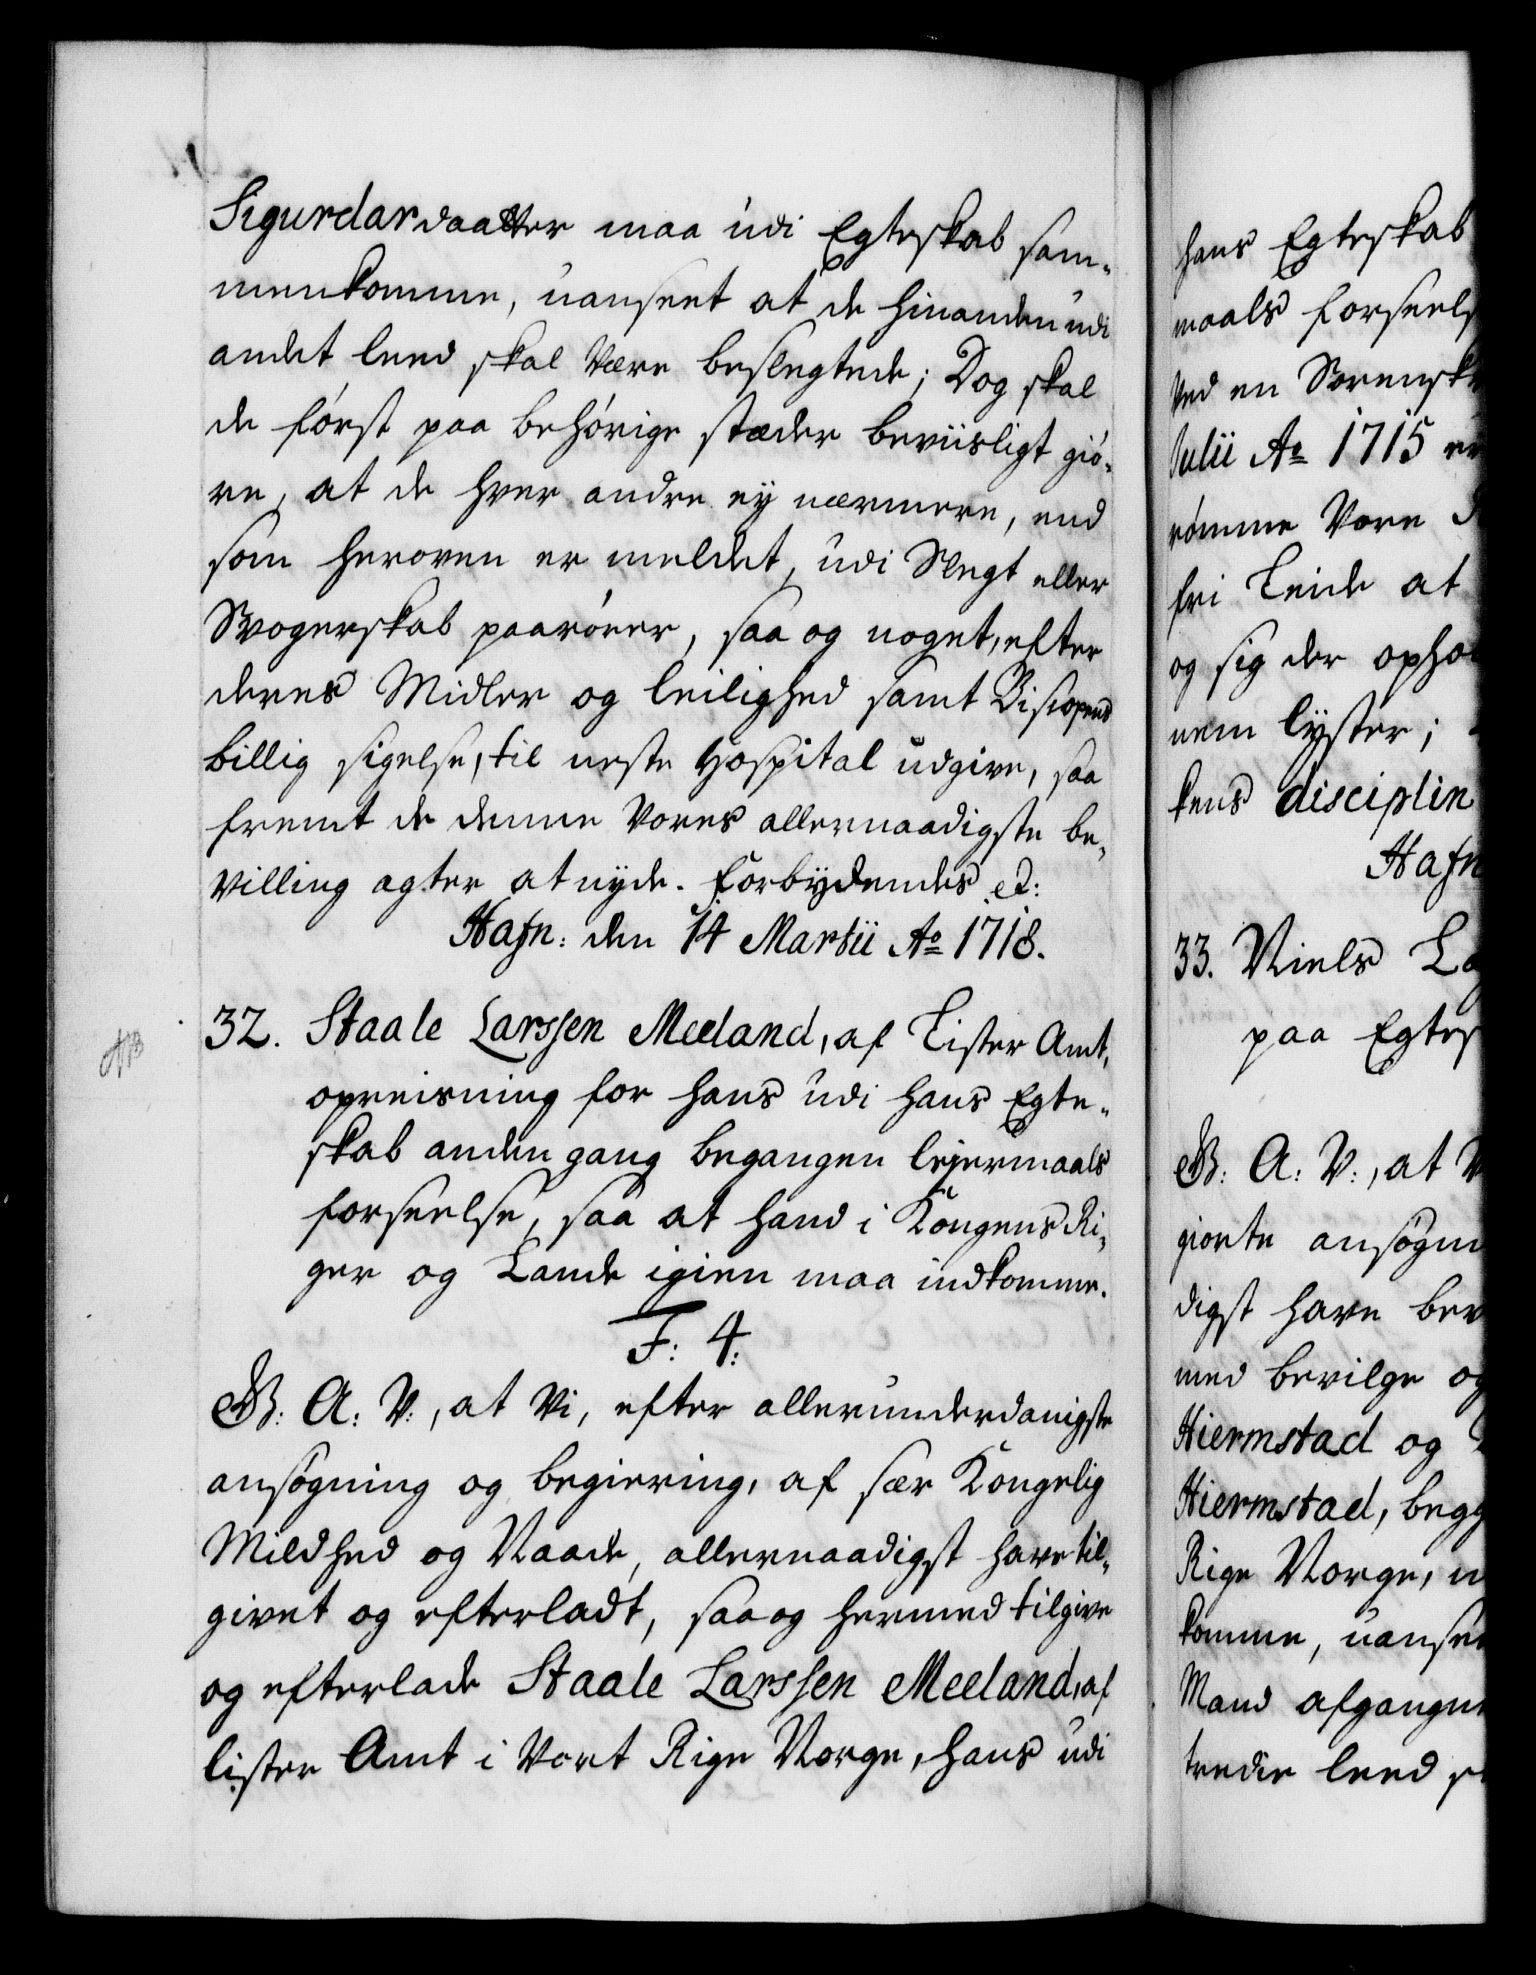 Sigurdardaatter maa udi Egteskab sam-
menkomme, uanseet at de hinanden udi
andet leed skal være beslegtede; Dog skal
de først paa behørige stæder beviisligt giø-
re, at de hver andre ey nærmere, end
som heroven er meldet, udi Slegt eller
Svogerskab paarører, saa og noget, efter
deres Midler og leilighed samt Biscopens
billig sigelse, til neste Hospital udgive, saa
fremt de denne Vores allernaadigste be-
villing agter at nyde. Forbydendes et:
Hafn: den 14 Martii Ao 1718.
32. Staale Larssen Meeland, af Lister Amt,
opreisning for hans udi hans Egte-
skab anden gang begangen lejermaals
forseelse, saa at hand i Kongens Ri-
ger og Lande igien maa indkomme.
F: 4:
G: A: V:, at Vi, efter allerunderdanigste
ansøgning og begiering, af sær Kongelig
Mildhed og Naade, allernaadigst have til-
givet og efterladt, saa og hermed tilgive
og efterlade Staale Larssen Meeland, af
lister Amt i Vort Rige Norge, hans udi
hans Egteskab
maals forseels
ved en Sorensk
Julii Ao 1715 er
rømme Vore
fri Leide at
og sig der opho
nem lyster;
kens disciplin
Hafn
33. Niels La
paa Egtes
G: A: V:, at V
giorte ansøgn
digst have bev
med bevilge og
Hiermstad og
Hiermstad, begg
Rige Norge, u
komme, uansee
Mand afgangne
tredie leed s